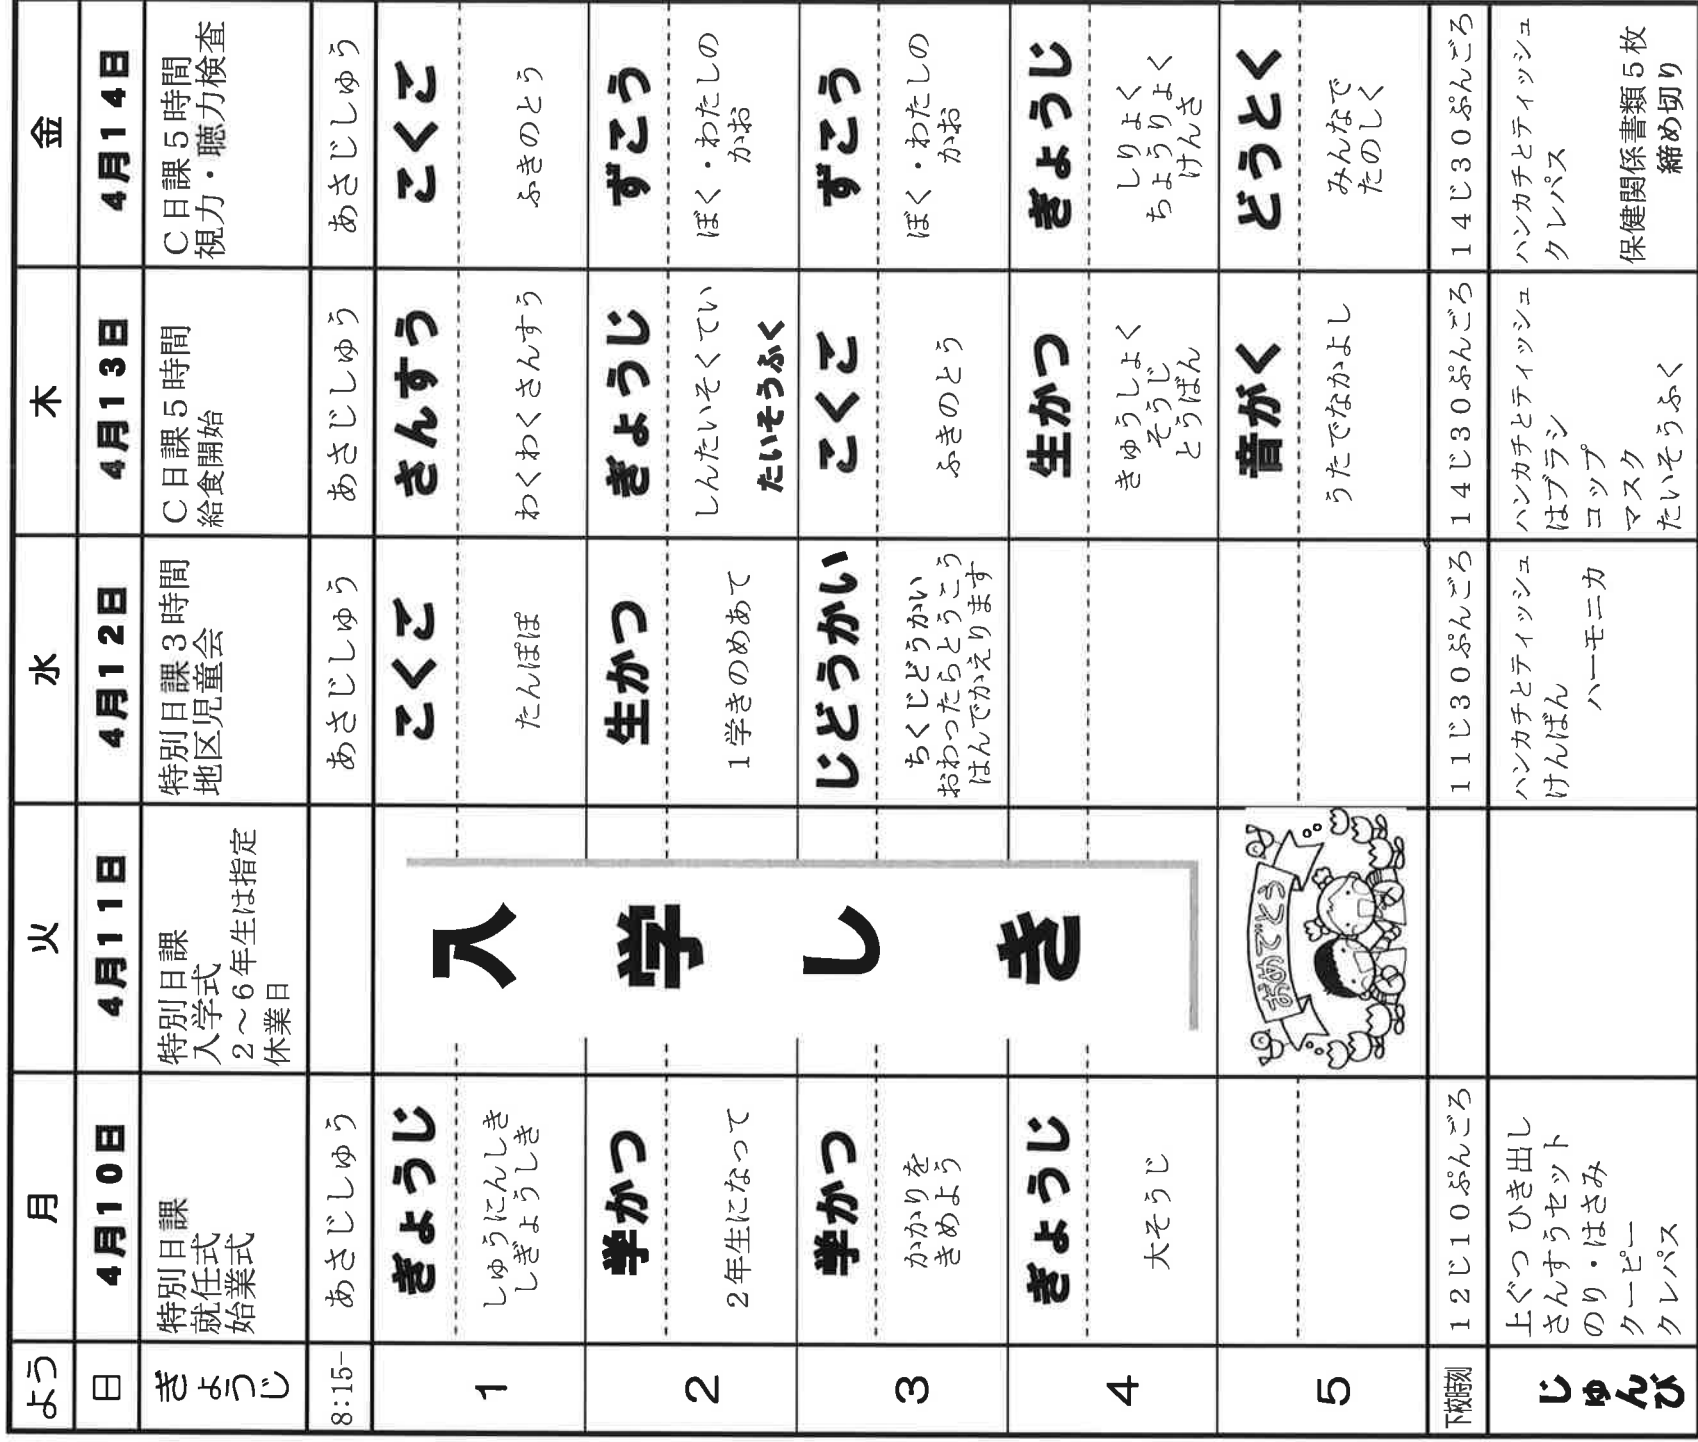 よう 月 火 水 木 金
日 4月10日 4月11日 4月12日 4月13日 4月14日
ぎょうじ
特別日課
就任式
始業式
特別日課
入学式
2～6年生は指定
休業日
特別日課3時間
地区児童会
C日課5時間
給食開始
C日課5時間
視力・聴力検査
8:15- あさじしゅう あさじしゅう あさじしゅう あさじしゅう
1
ぎょうじ
しゅうにんしき
しぎょうしき
こくご
たんぽぽ
さんすう
わくわくさんすう
こくご
ふきのとう
入学しき
2
学かつ
2年生になって
生かつ
1学きのめあて
ぎょうじ
しんたいそくてい
たいそうふく
ずこう
ぼく・わたしの
かお
3
学かつ
かかりを
きめよう
じどうかい
ちくじどうかい
おわったらとうこう
はんでかえります
こくご
ふきのとう
ずこう
ぼく・わたしの
かお
4
ぎょうじ
大そうじ
生かつ
きゅうしょく
そうじ
とうばん
ぎょうじ
しりょく
ちょうりょく
けんさ
5
おめでとう
音がく
うたでなかよし
どうとく
みんなで
たのしく
下校時刻 12じ10ぷんごろ 11じ30ぷんごろ 14じ30ぷんごろ 14じ30ぷんごろ
じゅんび
上ぐつ ひき出し
さんすうセット
のり・はさみ
クーピー
クレパス
ハンカチとティッシュ
けんばん
ハーモニカ
ハンカチとティッシュ
はブラシ
コップ
マスク
たいそうふく
ハンカチとティッシュ
クレパス
保健関係書類5枚
締め切り